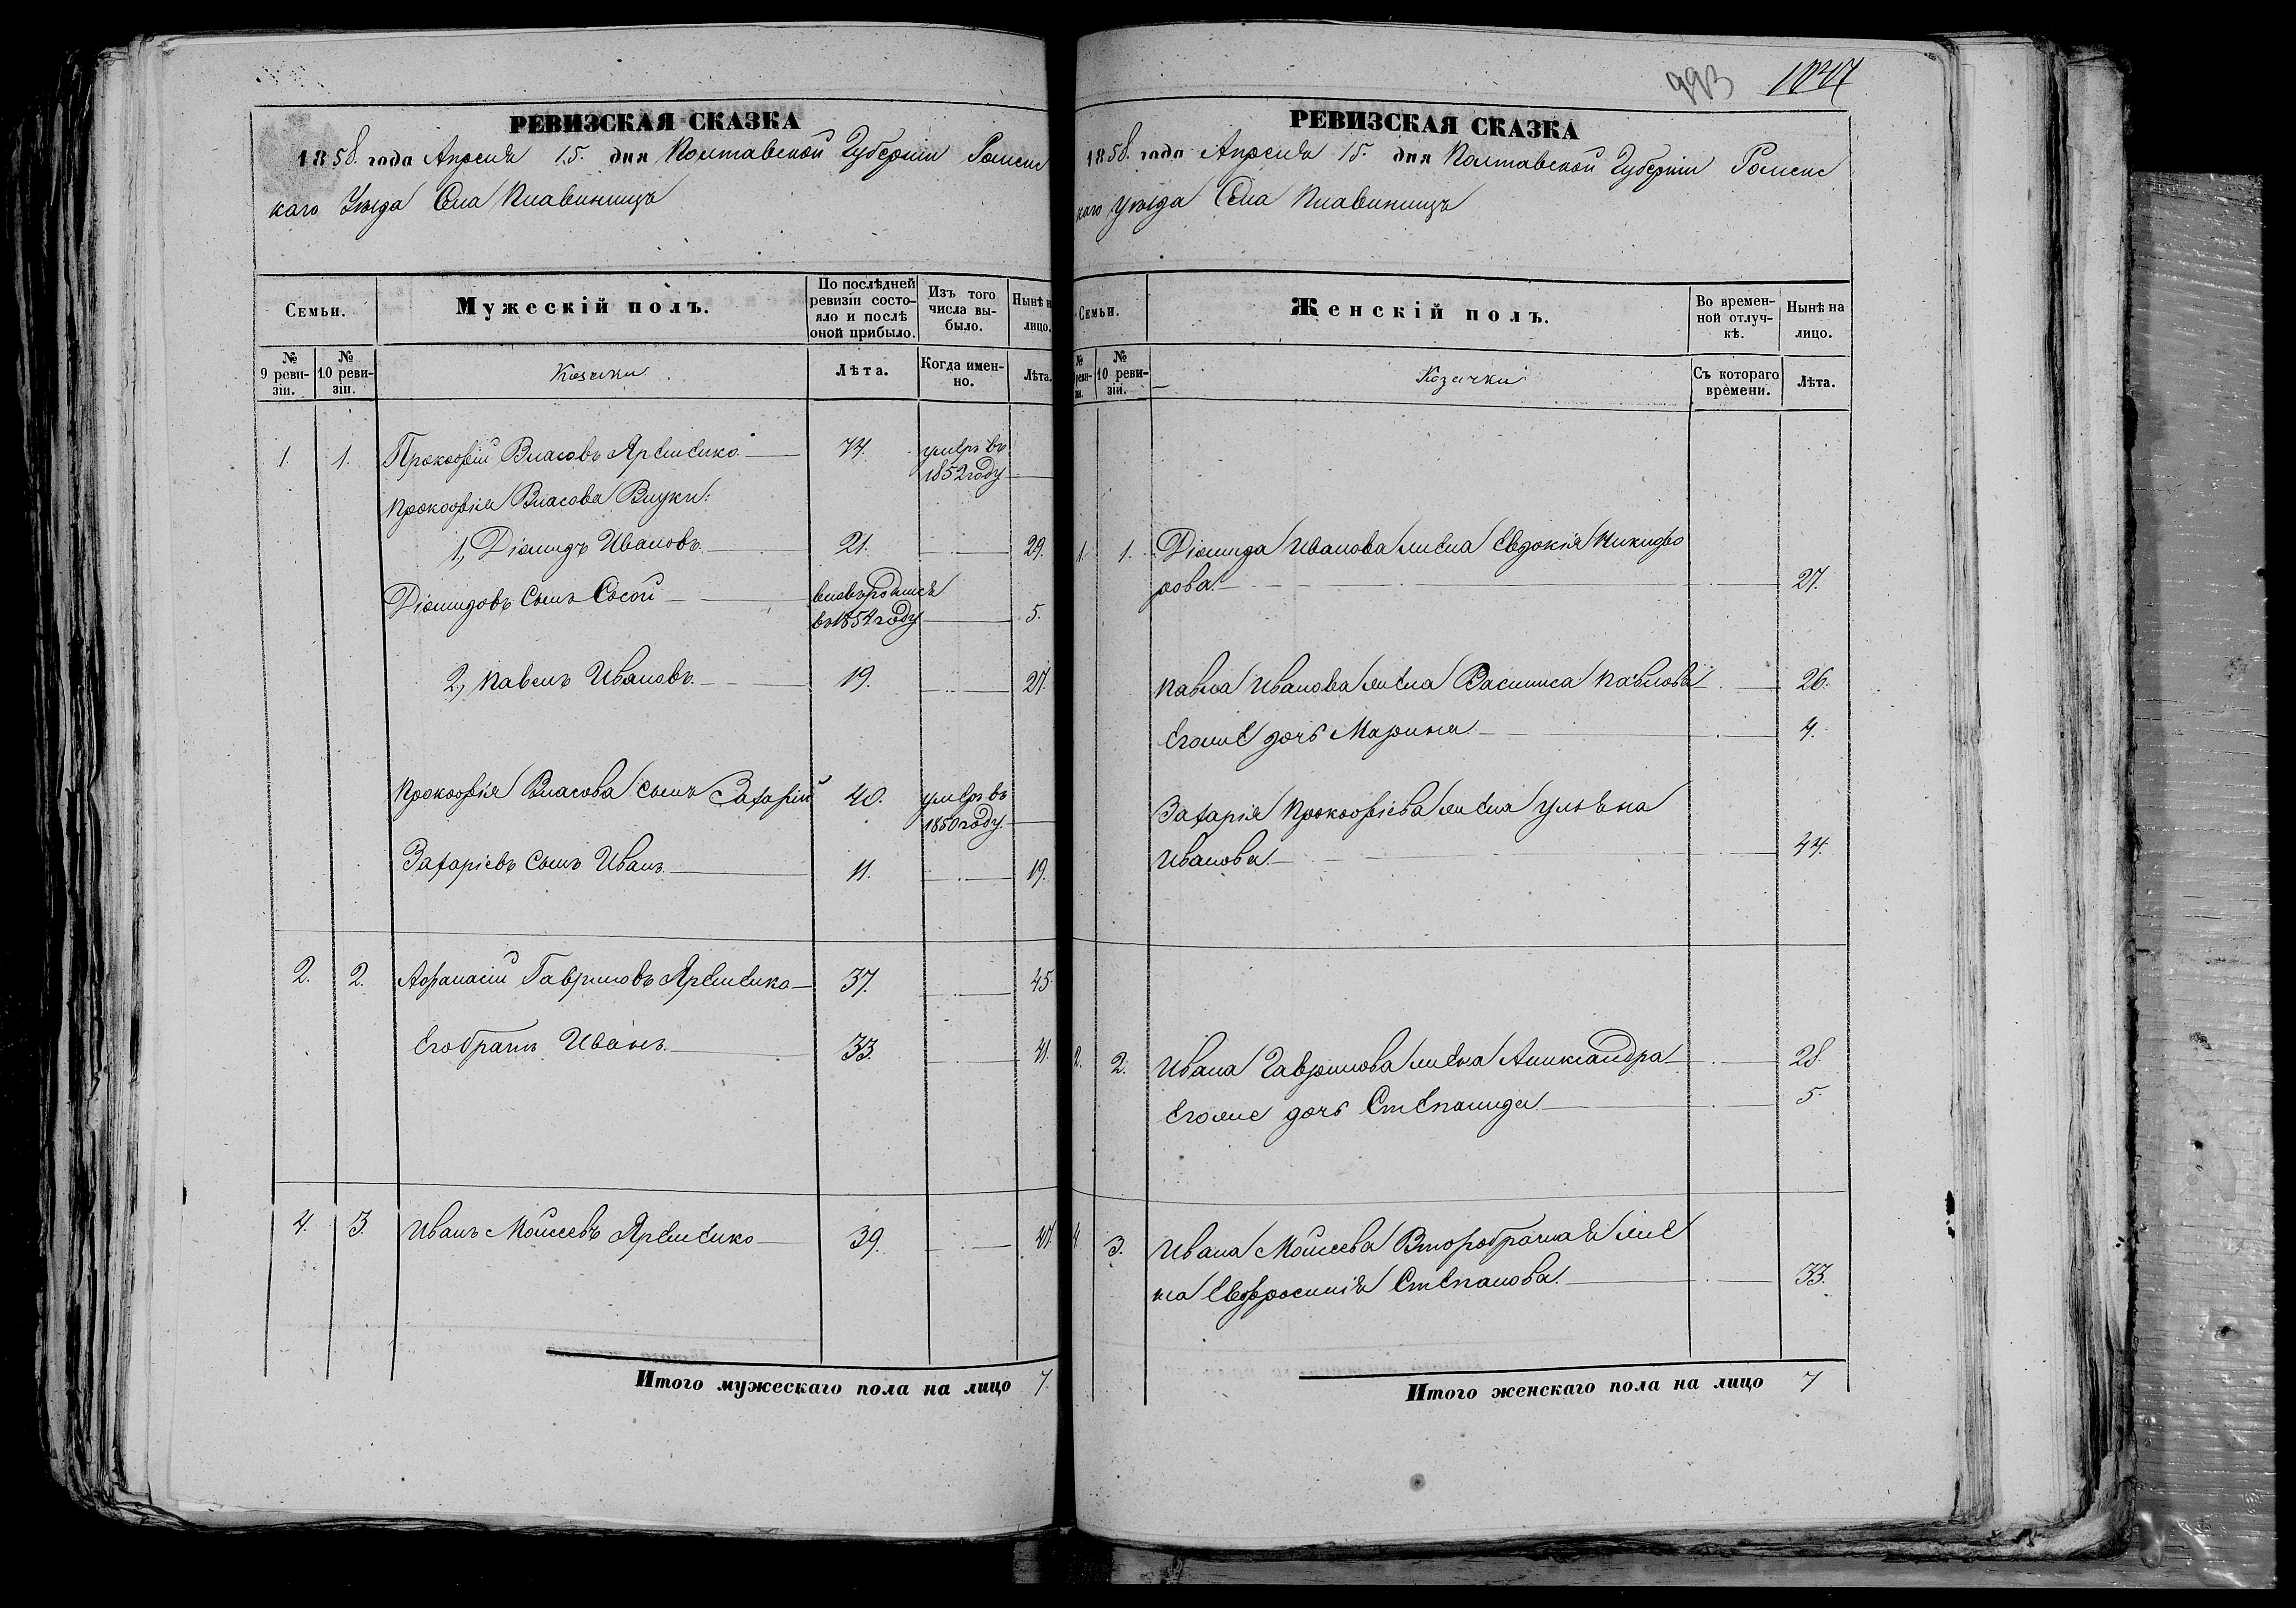 РЕВИЗСКАЯ СКАЗКА
1858. года Апреля 15. дня Полтавской Губерніи Роменс
каго Уѣзда Села Плавинищъ
Семьи.
Мужескій полъ.
По послѣдней ревизіи состояло и послѣ оной прибыло.
Изъ того числа выбыло.
Нынѣ н
лицо.
№ 9 ревизіи.
№ 10 ревизіи.
Козаки
Лѣта.
Когда именно.
Лѣта.
1. 1. Прокофій Власовъ Яременко 74. умеръ въ
1852 году
Прокофія Власова Внуки:
1, Діомидъ Ивановъ 21. 29.
Діомидовъ Сынъ Сысой вновьродился
въ 1854 году 5.
2, Павелъ Ивановъ 19. 27.
Прокофія Власова сынъ Захарій 40. умеръ въ
1850 году
Захаріевъ Сынъ Иванъ 11. 19.
2. 2. Афанасій Гавриловъ Яременко 37. 45.
Егобратъ Иванъ 33. 41.
4. 3. Иванъ Моисеевъ Яременко 39. 47.
Итого мужескаго пола на лицо 7.
993 1047
РЕВИЗСКАЯ СКАЗКА
1858. года Апреля 15. дня Полтавской Губерніи Роменс
каго Уѣзда Села Плавинищъ
Семьи.
Женскій полъ.
Во временной отлучкѣ.
Нынѣ на лицо.
№
№ 10 ревизіи.
Козачки
Съ котораго времени.
Лѣта.
1. 1. Діомида Иванова жена Евдокія Никифо
рова 27.
Павла Иванова жена Василиса Павлова 26.
Егоже дочь Марина 4.
Захарія Прокофіева жена Ульяна
Иванова 44.
2. 2. Ивана Гаврилова жена Александра 28
Егоже дочь Степанида 5.
4 3. Ивана Моисеева Второбрачная же
на Евфросинія Степанова 33.
Итого женскаго пола на лицо 7